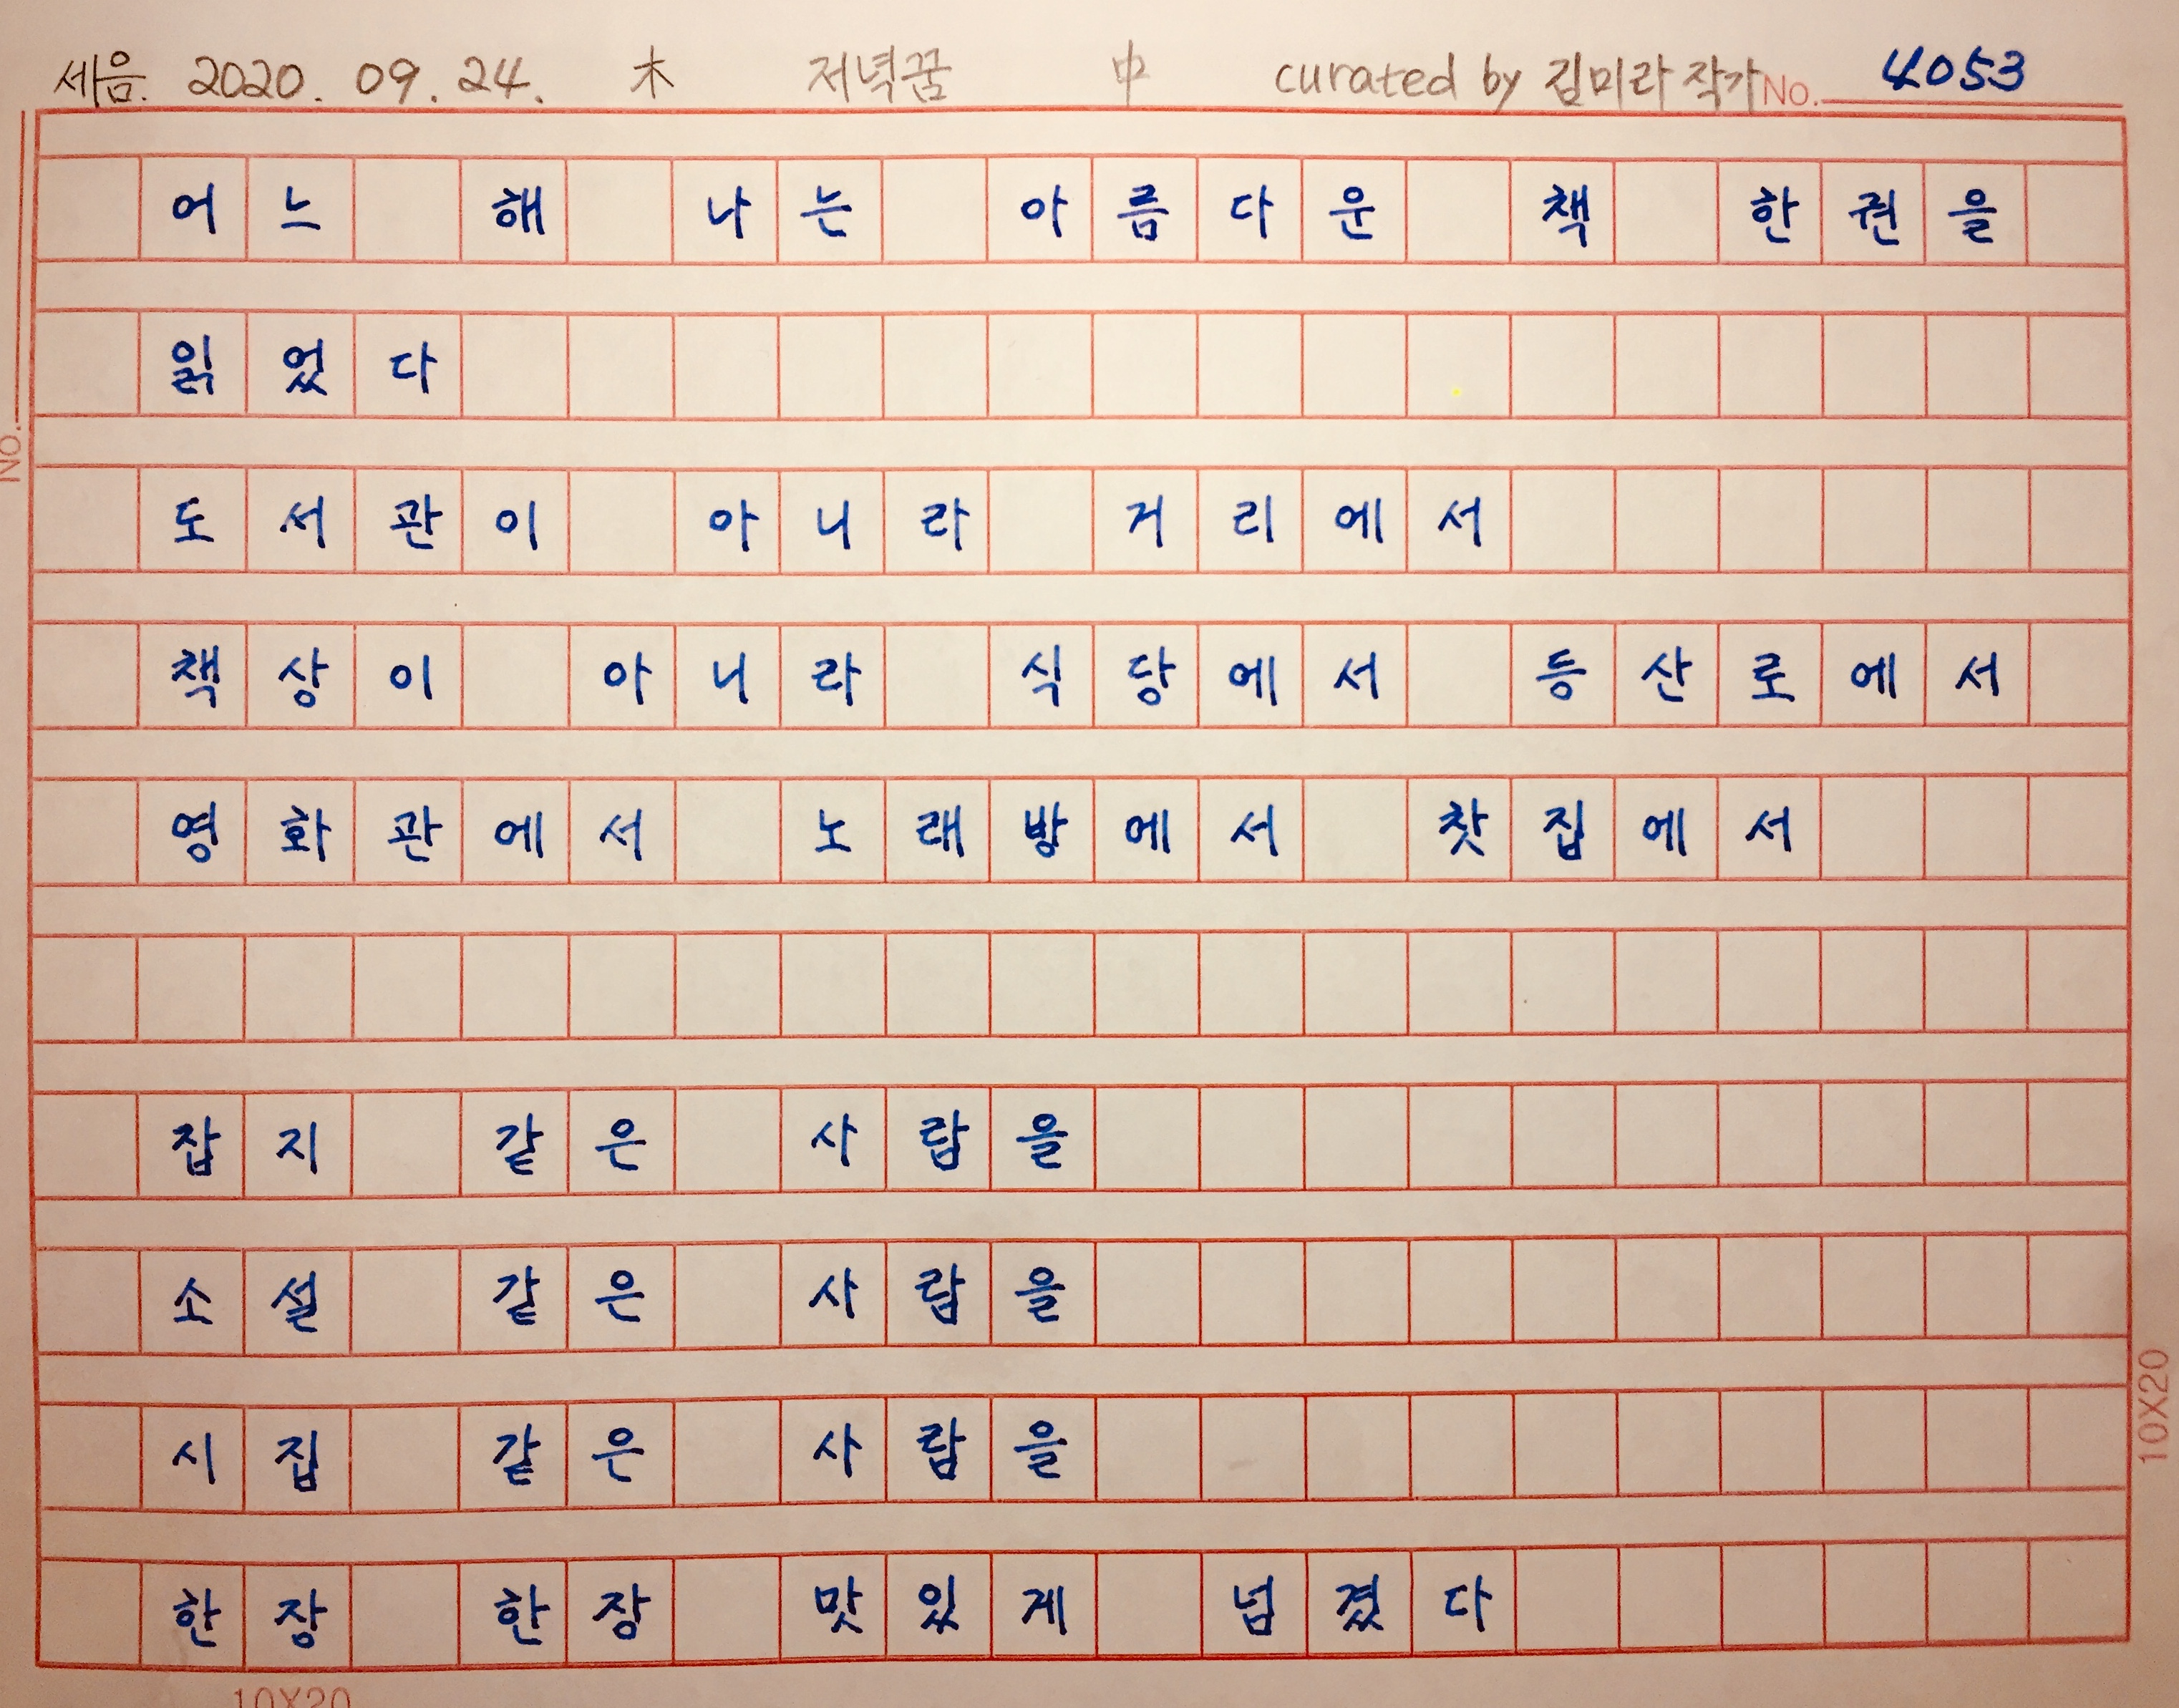 세음. 2020. 09. 24. 木 저녁꿈 中 curated by 김미라 작가 No. 4053
어느 해 나는 아름다운 책 한권을
읽었다
No.
도서관이 아니라 거리에서
책상이 아니라 식당에서 등산로에서
영화관에서 노래방에서 찻집에서
잡지 같은 사람을
소설 같은 사람을
시집 같은 사람을
10X20
한장 한장 맛있게 넘겼다
10X20